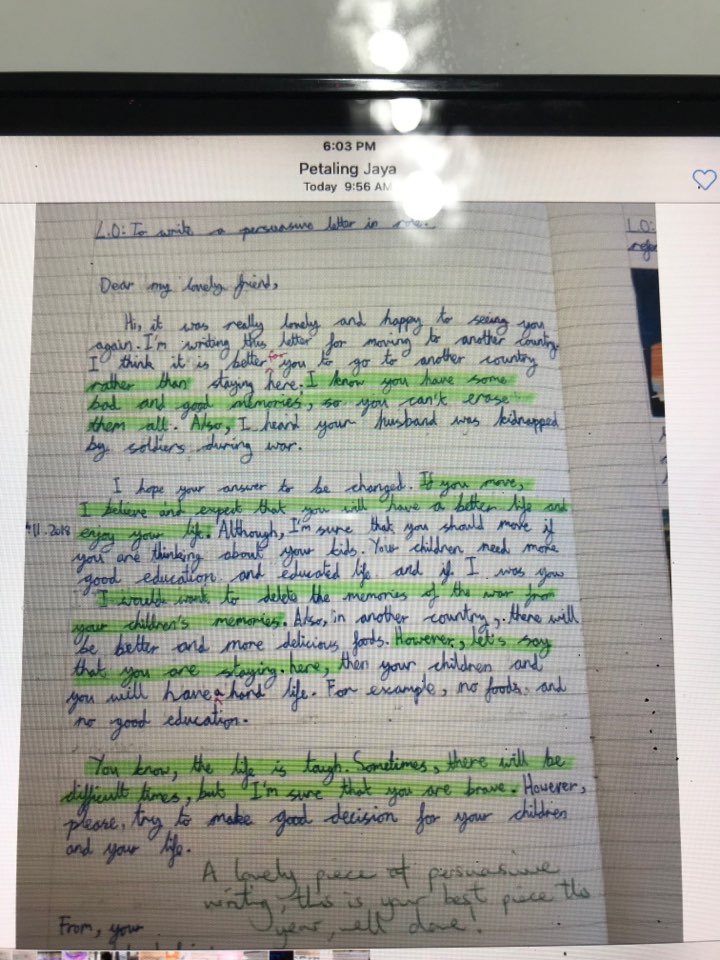 6:03 PM
Petaling Jaya
Today 9:56 AM
L.O: To write a persuasive letter in role.
L.O:
Dear my lovely friend,
Hi, it was really lovely and happy to seeing you
again. I'm writing this letter for moving to another country.
I think it is better for you to go to another country
rather than staying here. I know you have some
bad and good memories, so you can't erase
them all. Also, I heard your husband was kidnapped
by soldiers during war.
I hope your answer to be changed. If you move,
I believe and expect that you will have a better life and
11.2018
enjoy your life. Although, I'm sure that you should move if
you are thinking about your kids. Your children need more
good education and educated life and if I was you
I would want to delete the memories of the war from
your children's memories. Also, in another country, there will
be better and more delicious foods. However, let's say
that you are staying here, then your children and
you will have a hard life. For example, no foods and
no good education.
You know, the life is tough. Sometimes, there will be
difficult times, but I'm sure that you are brave. However,
please, try to make good decision for your children
and your life.
A lovely piece of persuasive
writing, this is your best piece this
year, well done.
From, your